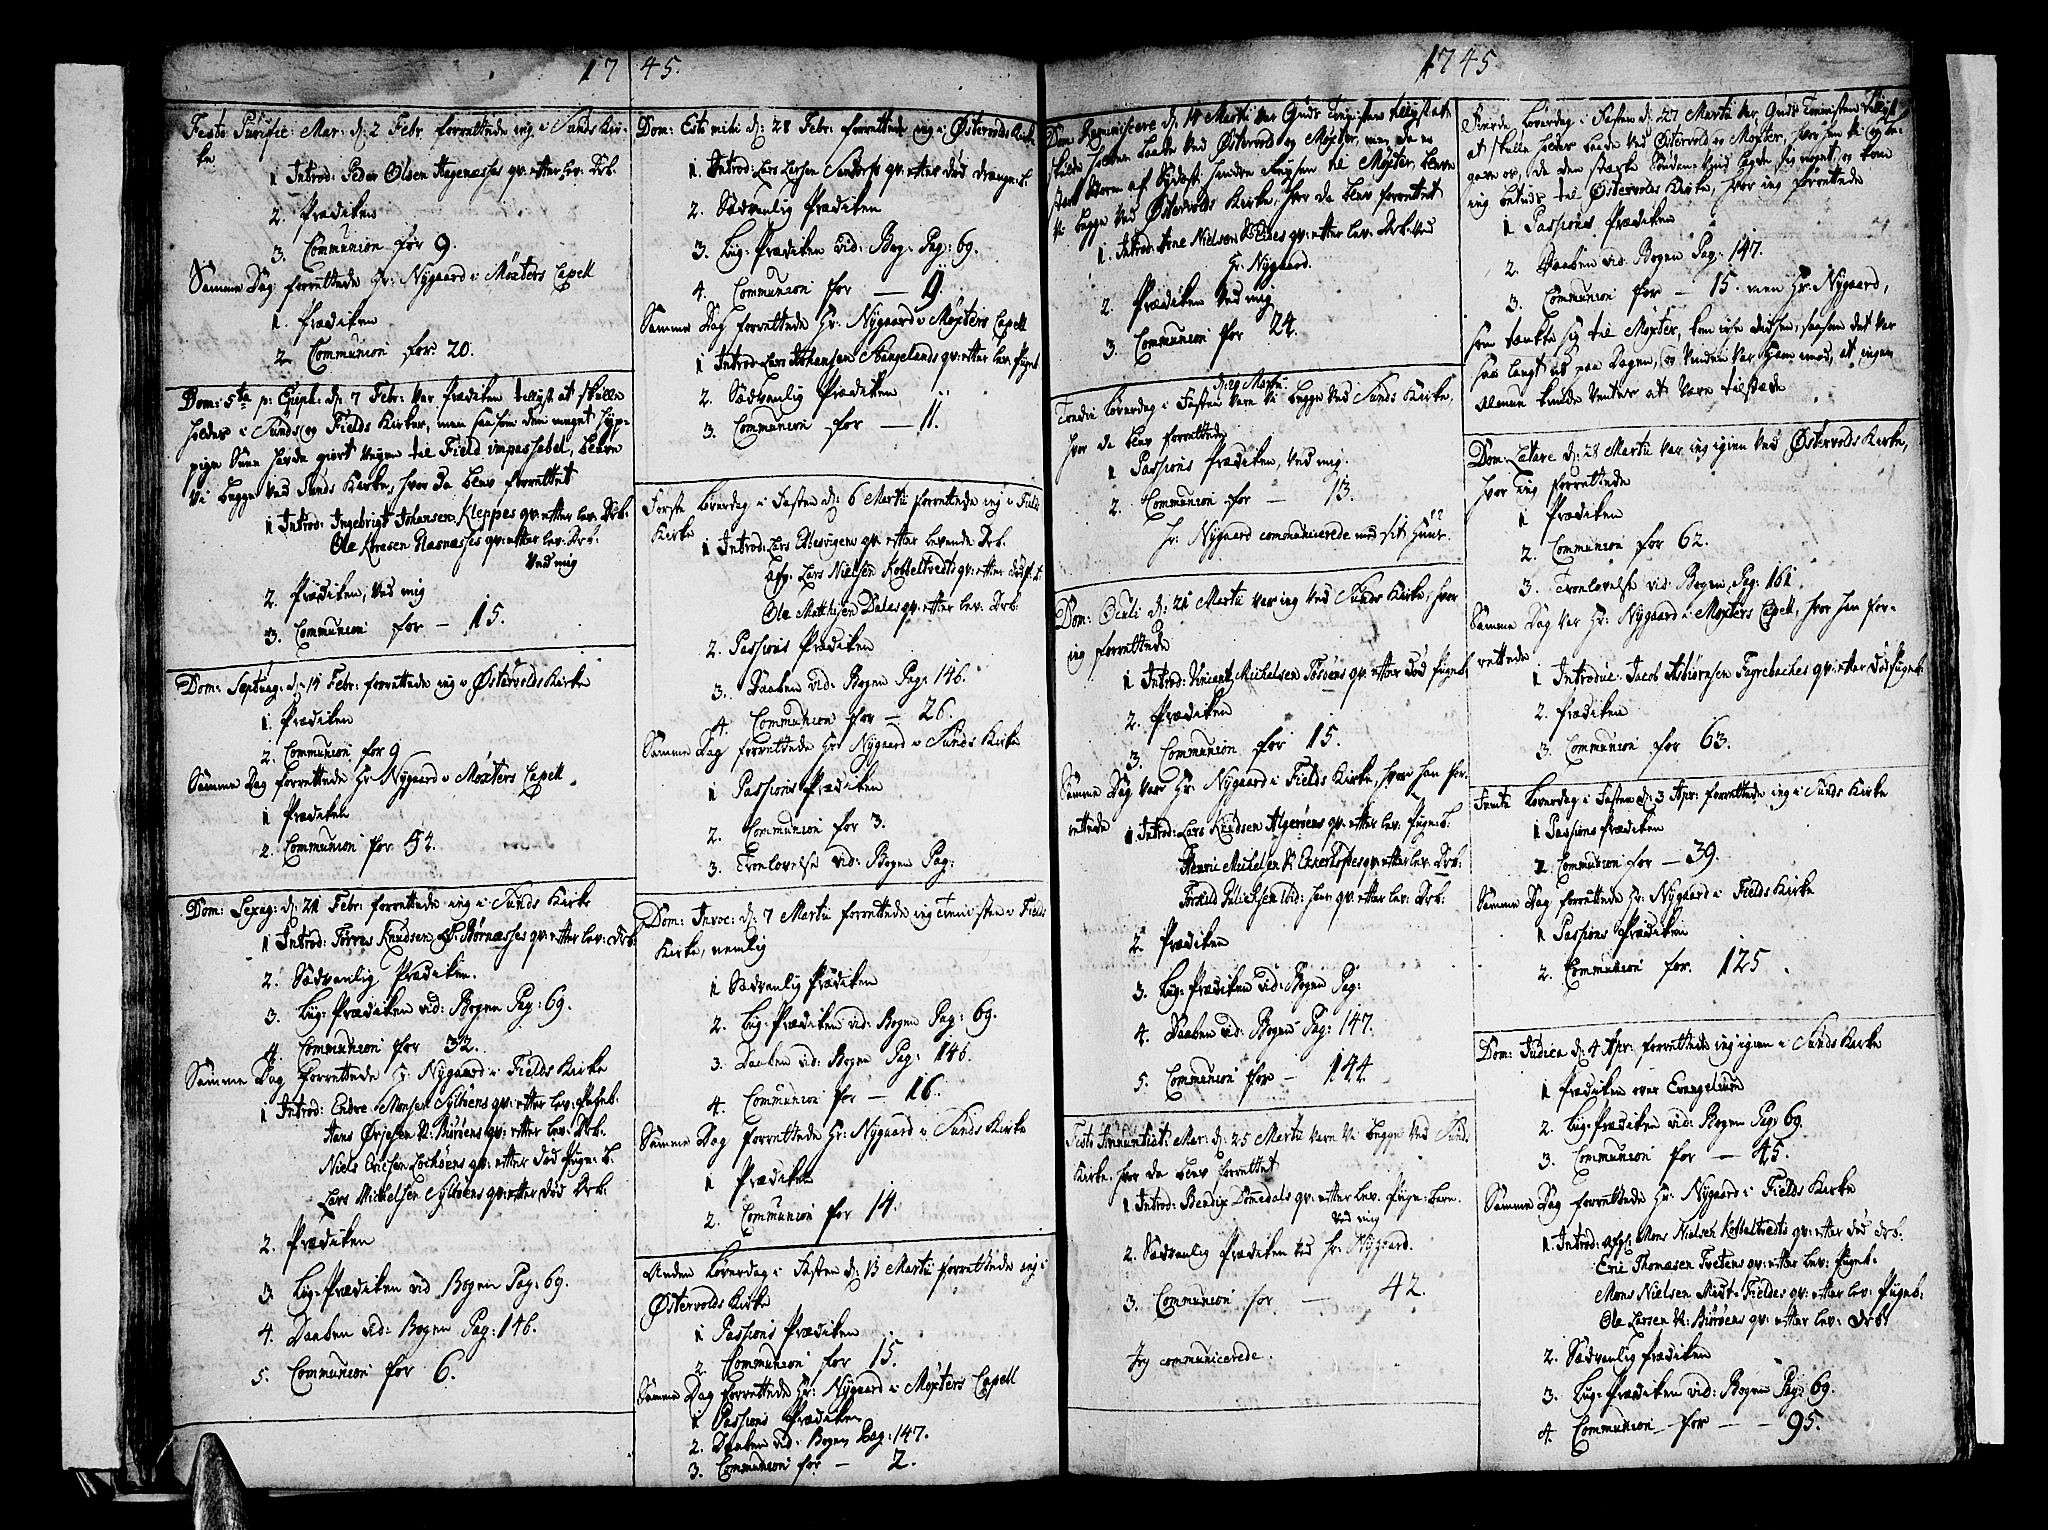 1745.
Festo Purific: Mar: d: 2 Febr forrettede ieg i Sunds Kir-
ke
1 Introd: Peder Olsen Hagenæsses qv: efter lev: Drb.
2. Prædiken
3. Communion for 9.
Samme Dag forrettede Hr: Nygaard i Møxters Capell
1. Prædiken
2. Communion for: 20.
Dom: 5ta p: Epiph: d: 7 Febr: var Prædiken tillyst at skulle
holdes i Sunds og Fields Kirker, men saasom den meget hyp-
pige Snee hafde giort veyen til Field impassabel, bleve
vi begge ved Sunds Kirke, hvor da blev forrettet
1 Introd: Ingebrigt Johansen Kleppes qv: efter lev: Drb:
Ole Næsses qv: efter lev: Drb.
ved mig
2. Prædiken, ved mig
3. Communion for – 15.
Dom: Septuag: d: 14 Febr: forrettede ieg i Østervolds Kirke
1. Prædiken
2. Communion for 9
Samme Dag forrettede Hr Nygaard i Møxters Capell
1 Prædiken
2. Communion for 52.
Dom: Sexag: d: 21 Febr: forrettede ieg i Sunds Kirke
1 Introd: Torres Knudsen qv: efter lev: Drb:
2. Sædvanlig Prædiken.
3. Liig-Prædiken vid: Bogen Pag: 69.
4. Communion for 32.
Samme Dag forrettede Hr: Nygaard i Fields Kirke
1 Introd: Endre Monsen Syltøens qv: efter lev: Pigeb:
Hans Ørjesen N: Børøens qv: efter lev: Drb.
Niels Ericsen Lochøens qv: efter død Pige: b.
Lars Michelsen Syltøens qv: efter død Drb:
2. Prædiken
3. Liig-Prædiken vid Bogen Pag: 69.
4. Daaben vid: Bogen Pag: 146.
5. Communion for 6.
Dom: Esto mihi d: 28 Febr: forrettede ieg i Østervolds Kirke
1. Introd: Lars Larsen Sandtorfs qv: efter død Drenge: b.
2. Sædvanlig Prædiken
3. Liig-Prædiken vid: Bog: Pag: 69.
4. Communion for — 9.
Samme Dag forrettede Hr: Nygaard i Møxters Capell
1 Introd: Lars Johansen Stangelands qv: efter lev. Pigeb
2. Sædvanlig Prædiken
3. Communion for — 11.
Første Løverdag i Fasten d: 6 Martii forrettede ieg i Field
Kirke
1 Introd: Lars Ebbesvigens qv: efter levende Drb.
Afg: Lars Nielsen Kobbeltvedts qv: efter død P: b.
Ole Matthisen Dales qv: efter lev: Drb.
2. Passions Prædiken
3. Daaben vid: Bogen Pag: 146.
4. Communion for – 26.
Samme Dag forrettede Hr: Nygaard i Sunds Kirke
1 Passions Prædiken
2. Communion for 3.
3. Tronlovelse vid: Bogen Pag:
Dom: Invoc: d: 7 Martii forrettede ieg Tienisten i Fields
Kirke, nemlig
1 Sædvanlig Prædiken
2. Liig-Prædiken vid: Bogen Pag: 69.
3. Daaben vid: Bogen Pag: 146.
4. Communion for – 16.
Samme Dag forrettede Hr: Nygaard i Sunds Kirke
1 Prædiken
2. Communion for 14.
Anden Løverdag i Fasten d: 13 Martii forrettede ieg i
Østervolds Kirke
1 Passions Prædiken
2. Communion for 15.
Samme Dag forrettede Hr: Nygaard i Møxters Capell
1 Passions Prædiken
2. Daaben vid: Bogen Pag: 147.
3. Communion for – 2.
1745
Dom: Reminiscere d: 14 Martii var Guds Tienisten tillyst at
skulde holdes baade ved Østervold og Møxter, men da en
stærk Storm af Sydost hindre Reysen til Møxter, bleve
vi begge ved Østervolds Kirke, hvor da blev forrettet
1. Introd: Arne Nielsen qv: efter lev. Drb: ved
Hr: Nygaard.
2. Prædiken ved mig
3. Communion for 24.
d: 20 Martii
Tredie Løverdag i Fasten vare vi begge ved Sunds Kirke,
hvor da blev forrettede
1 Passions Prædiken, ved mig.
2. Communion for – 13.
Hr: Nygaard communicerede med sit Huus.
Dom: Oculi d: 21 Martii var ieg ved Sunds Kirke, hvor
ieg forrettede
1 Introd: Vincent Michelsen Tøsøens qv: efter død Pigeb.
2. Prædiken
3. Communion for 15.
Samme Dag var Hr: Nygaard i Fields Kirke, hvor han for-
rettede
1. Introd: Lars Knudsen Algerøens qv: efter lev: Pige: b.
Henric Michelsen N: Eckerhofdes qv: efter lev: Drb:
Torkild ibid: hans qv: efter lev: Drb:
2. Prædiken
3. Liig-Prædiken vid: Bogen Pag:
4. Daaben vid: Bogen Pag: 147.
5. Communion for – 144.
Festo Annuntiat: Mar: d: 25 Martii vare vi begge ved Sunds
Kirke, hvor da blev forrettet
1 Introd: Bendix Tømedals qv: efter lev. Pige-barn.
ved mig
2. Sædvanlig Prædiken ved Hr: Nygaard.
3. Communion for – 42.
Jeg communicerede.
Fierde Løverdag i Fasten d: 27 Martii var Guds Tienisten tillyst
at skulle holdes baade ved Østervold og Møxter,
ieg betids til Østervolds Kirke, hvor ieg forrettede
1 Passions Prædiken
2. Daaben vid: Bogen Pag: 147.
3. Communion for – 15. men Hr: Nygaard,
som tænkte sig til Møxter, kom icke didhen, saasom det var
saa langt ud paa Dagen, og vinden var ham imod, at ingen
Almue kunde ventes at være tilstæde
Dom: Lætare d: 28 Martii var ieg igien ved Østervolds Kirke,
hvor ieg forrettede
1 Prædiken
2. Communion for 62.
3. Tronlovelse vid: Bogen Pag: 161
Samme Dag var Hr: Nygaard i Møxters Capell, hvor han for-
rettede
1 Introduc: Jacob Asbiørnsen Fagrebackes qv: efter død Pigeb.
2. Prædiken
3. Communion for 63.
Femte Løverdag i Fasten d: 3 Apr: forrettede ieg i Sunds Kirke
1 Passions prædiken
2. Communion for – 39.
Samme Dag forrettede Hr: Nygaard i Fields Kirke
1 Passions Prædiken
2. Communion for. 125
Dom: Judica d: 4 Apr: forrettede ieg igien i Sunds Kirke
1 Prædiken over Evangelium
2. Liig-Prædiken vid: Bogen Pag: 69.
3. Communion for – 45.
Samme Dag forrettede Hr: Nygaard i Fields Kirke
1. Introd: afg: Mons Nielsen Kobbeltvedts qv: efter død Drb.
Eric Thomæsen Tveitens qv: efter lev: Pigeb.
Mons Nielsen Midt-Fieldes qv: efter lev: Pigeb.
Ole Larsen N: Børøens qv: efter lev: Drb:
2. Sædvanlig Prædiken
3. Liig-Prædiken vid: Bogen Pag: 69.
4. Communion for – – 95.